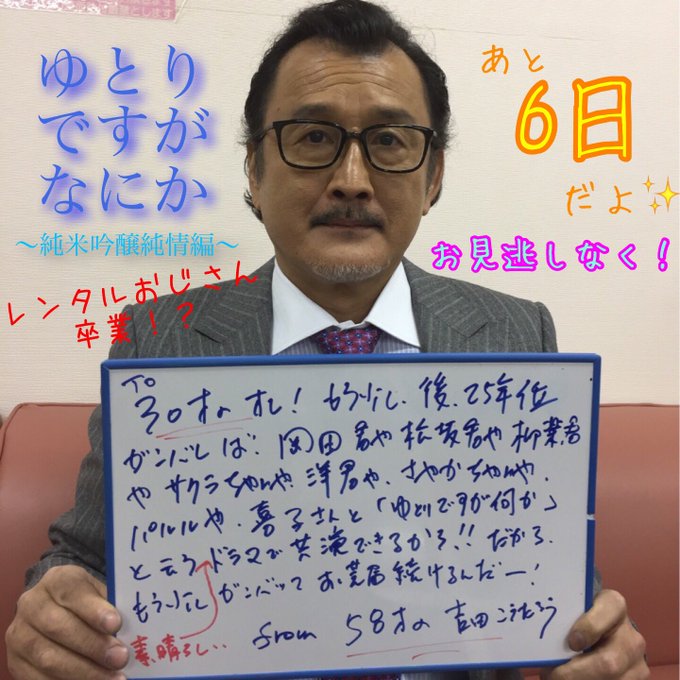 ゆとり
ですが
なにか
～純米吟醸純情編～
レンタルおじさん
卒業！？
あと
6日
だよ✨
お見逃しなく！
TO
30才のオレ！もう少し、後、25年位
ガンバレば、岡田君や松坂君や柳楽君
や サクラちゃんや、洋君や、さやかちゃんや、
パルルや、喜子さんと「ゆとりですが何か」
と云うドラマで共演できるから!!だから、
もう少しガンバッてお芝居続けるんだー！
素晴らしい..
from 58才の 吉田こうたろう